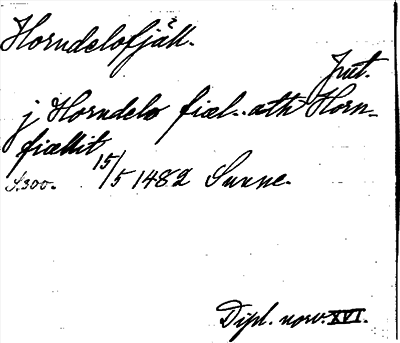 Horndelofjäll.
Jmt.
j Horndelo fiæl.. ath Horn-
fiællit
S.300. 15/5 1482 Sunne.
Dipl. norv. XVI.